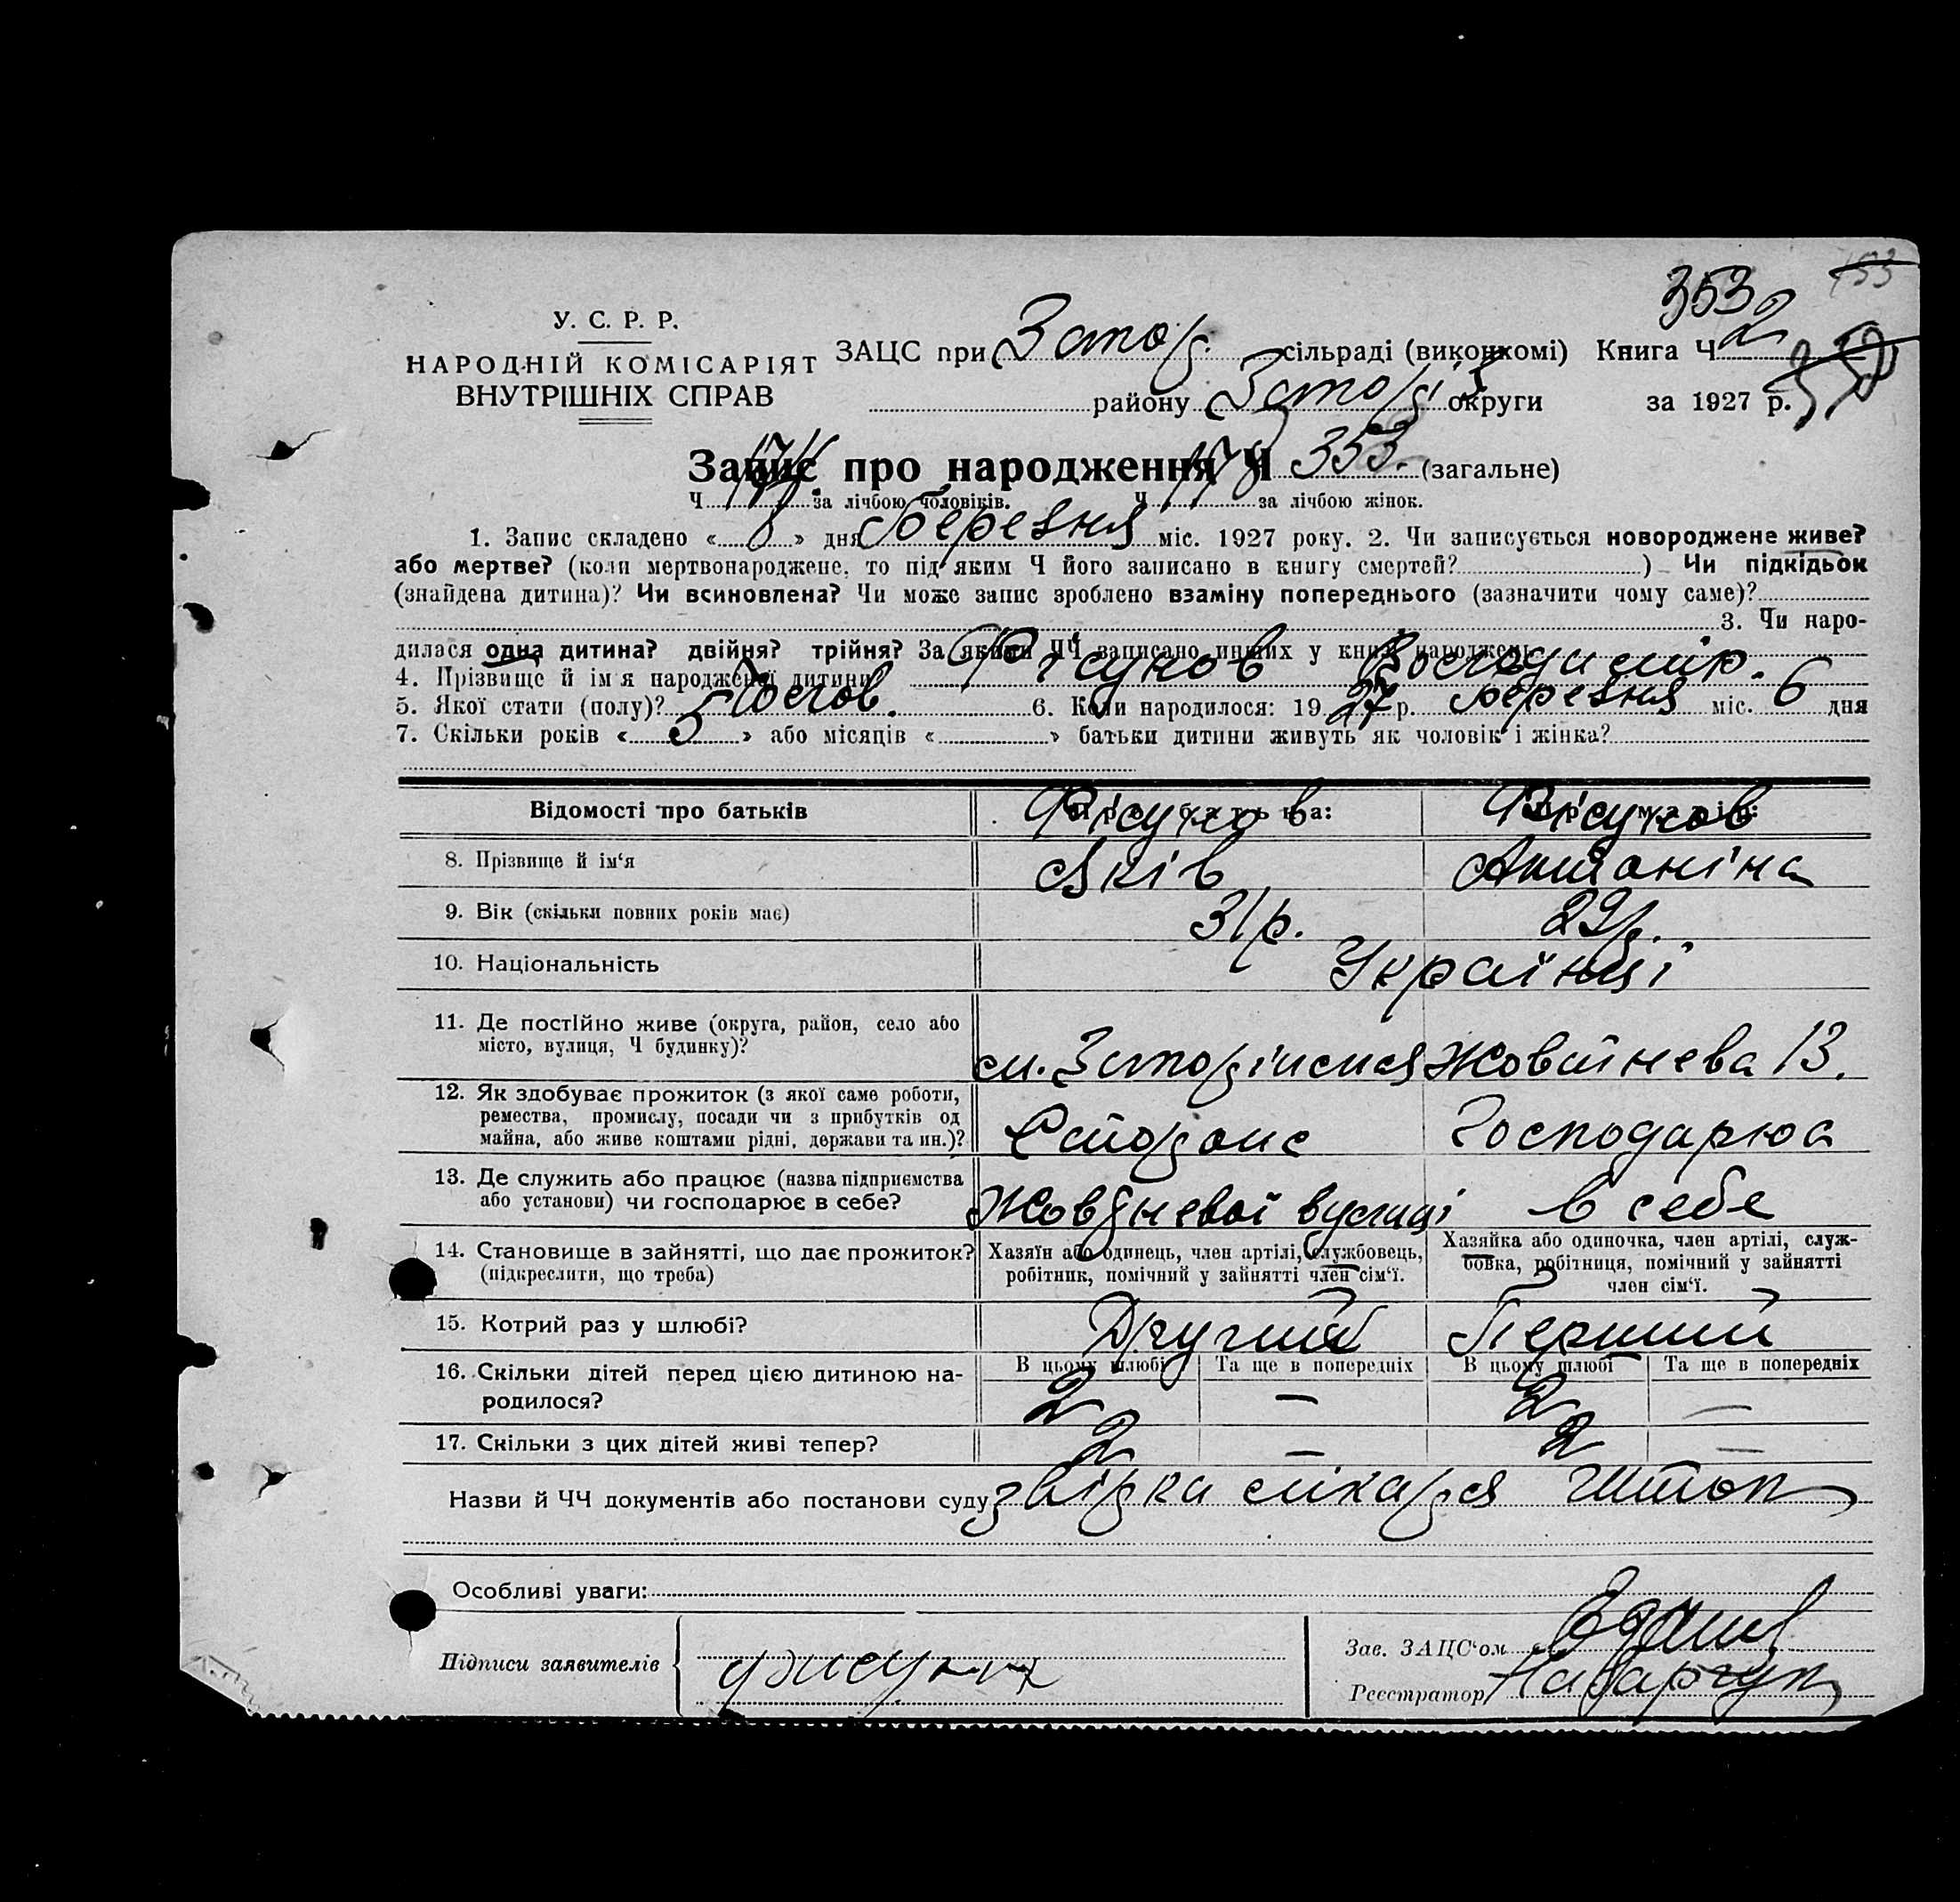 353
У. С. Р. Р.
НАРОДНІЙ КОМІСАРІЯТ
ВНУТРІШНІХ СПРАВ
ЗАЦС при Запор. сільраді (виконкомі) Книга Ч 2
району Запоріз округи за 1927 р.
Запис про народження Ч 353. (загальне)
Ч за лічбою чоловіків. Ч 179 за лічбою жінок.
1. Запис складено « 8 » дня березня міс. 1927 року. 2. Чи записується новороджене живе?
або мертве? (коли мертвонароджене, то під яким Ч його записано в книгу смертей? ) Чи підкідьок
(знайдена дитина)? Чи всиновлена? Чи може запис зроблено взаміну попереднього (зазначити чому саме)?
3. Чи наро-
дилася одна дитина? двійня? трійня? За якими ЧЧ записано инших у книзі народжень
4. Прізвище й ім'я народженої дитини Фісунов Володимір.
5. Якої стати (полу)? Чолов. 6. Коли народилося: 1927 р. березня міс. 6 дня
7. Скільки років « 5 » або місяців « » батьки дитини живуть як чоловік і жінка?
Відомості про батьків Про батька: Про матір:
8. Прізвище й ім'я Фісунов Яків Фісунов Антоніна
9. Вік (скільки повних років має) 31 р. 29 р.
10. Національність Українці
11. Де постійно живе (округа, район, село або
місто, вулиця, Ч будинку)? м. Запоріжжя Жовтнева 13.
12. Як здобуває прожиток (з якої саме роботи,
ремества, промислу, посади чи з прибутків од
майна, або живе коштами рідні, держави та ин.)? Сторож Господарюа
13. Де служить або працює (назва підприємства
або установи) чи господарює в себе? Жовтневої вулиці в себе
14. Становище в зайнятті, що дає прожиток?
(підкреслити, що треба)
Хазяїн або одинець, член артілі, службовець,
робітник, помічний у зайнятті член сім'ї.
Хазяйка або одиночка, член артілі, служ-
бовка, робітниця, помічний у зайнятті
член сім'ї.
15. Котрий раз у шлюбі? Другий Перший
В цьому шлюбі Та ще в попередніх В цьому шлюбі Та ще в попередніх
16. Скільки дітей перед цією дитиною на-
родилося? 2 — 2 —
17. Скільки з цих дітей живі тепер? 2 — 2 —
Назви й ЧЧ документів або постанови суду довідка лікаря
Особливі уваги:
Підписи заявителів
Зав. ЗАЦС'ом
Реєстратор